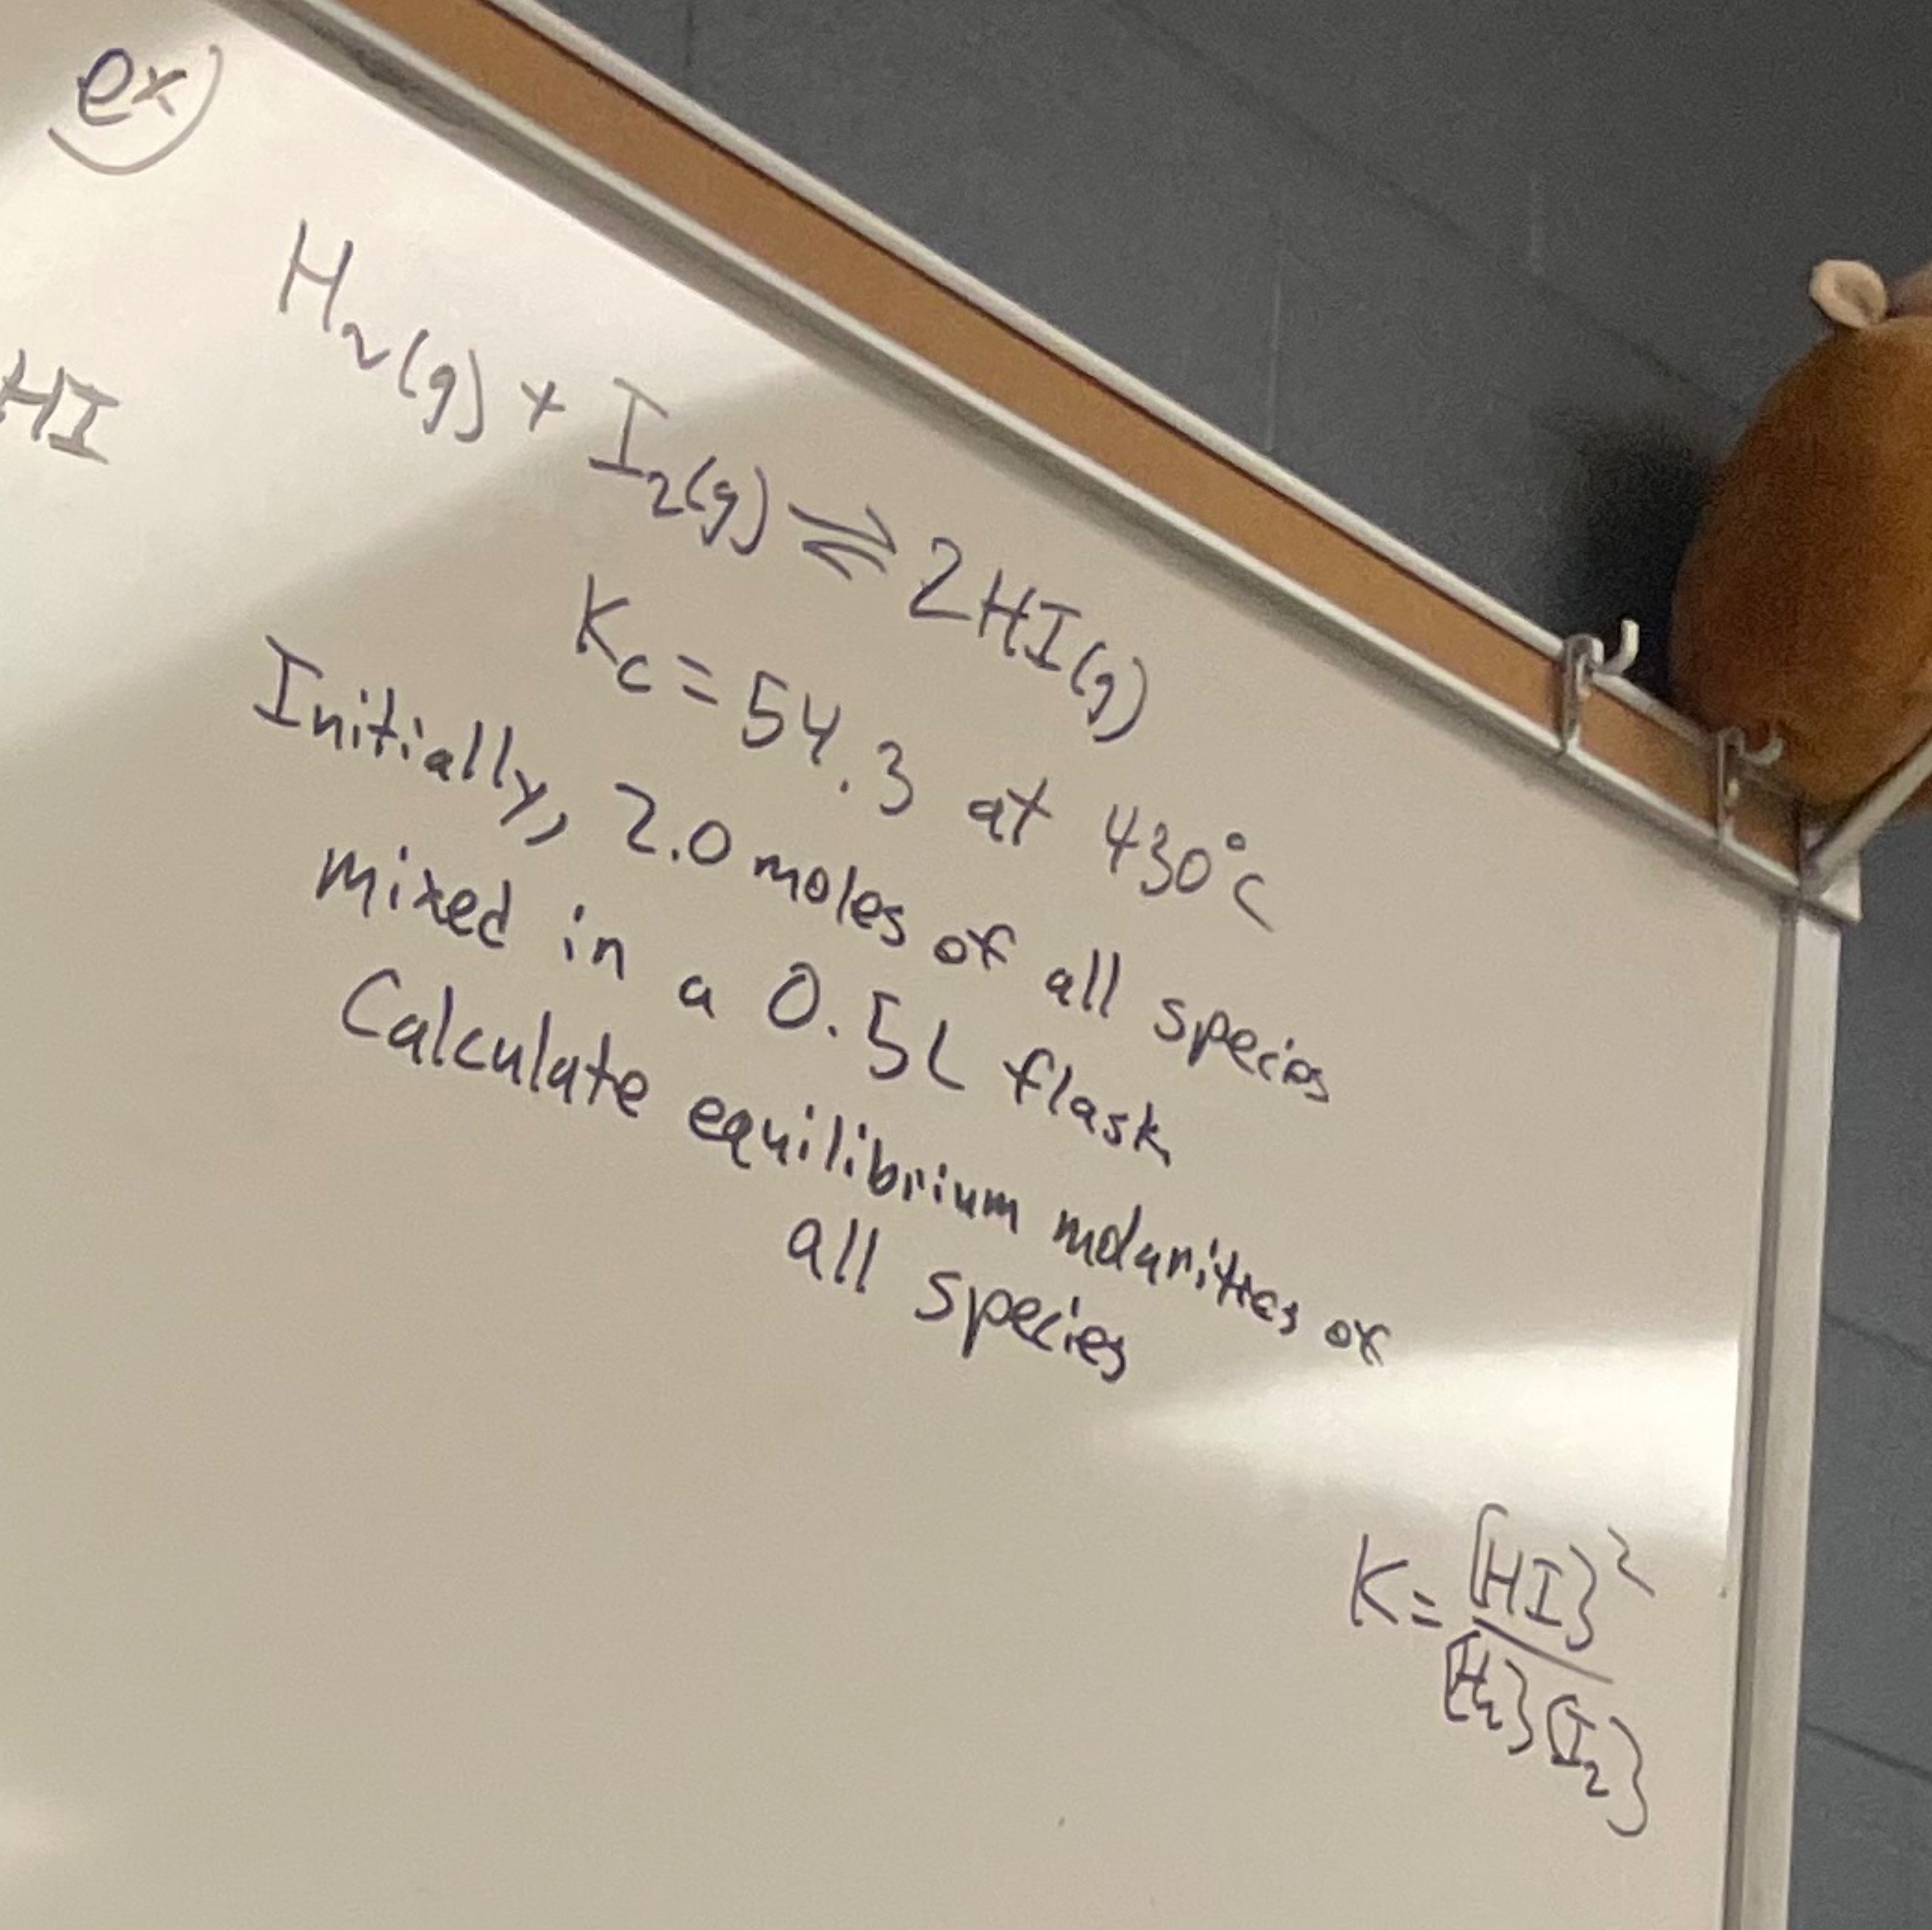 ex)
HI
H₂(g) + I₂(g) ⇌ 2HI(g)
Kc = 54.3 at 430°C
Initially, 2.0 moles of all species
mixed in a 0.5L flask
Calculate equilibrium molarities of
all species
K = {HI}²
{H₂}{I₂}